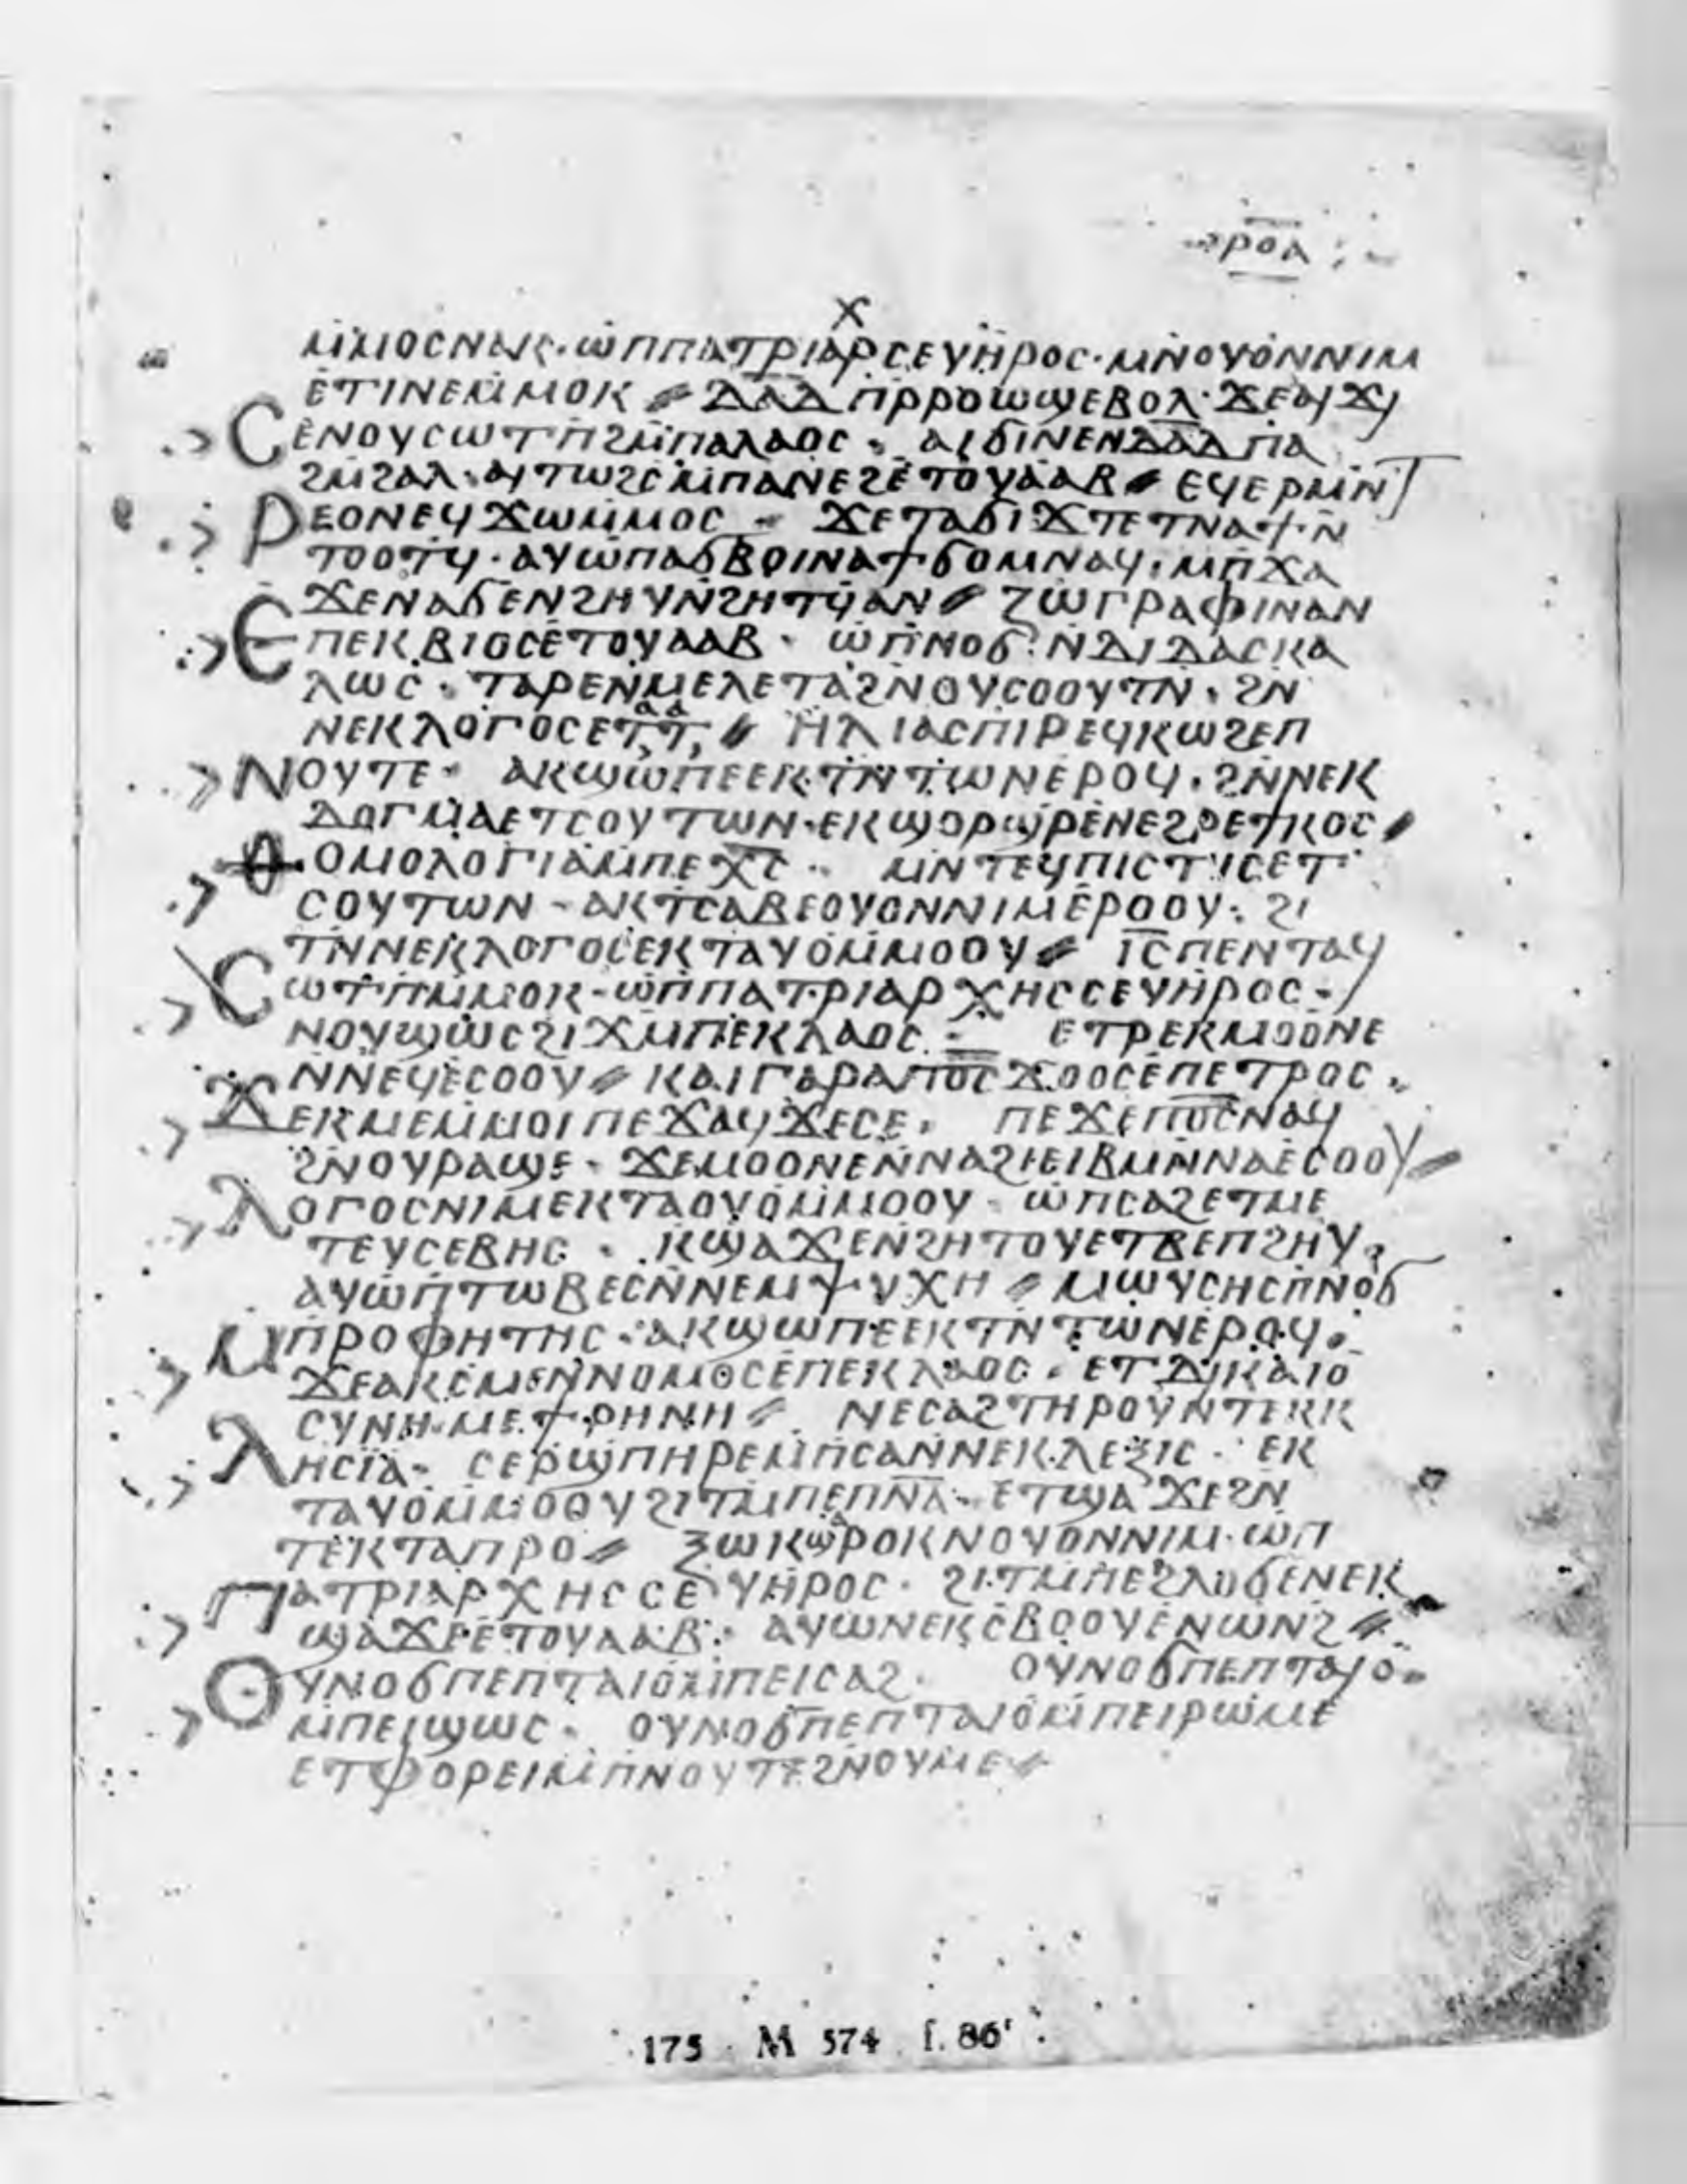 ⲣⲟⲁ
ⲙ̇ⲙⲟⲥⲛⲁⲕ· ⲱ̇ⲡⲡⲁⲧⲣⲓⲁⲣⲭ ⲥⲉⲩⲏ̇ⲣⲟⲥ· ⲙⲛ̇ⲟⲩⲟ̇ⲛⲛⲓⲙ
ⲉ̇ⲧⲓⲛⲉⲙ̇ⲙⲟⲕ⸗ ⲇⲁⲇ ⲡ̇ⲣⲣⲟⲱϣⲉⲃⲟⲗ· ϫⲉⲁϥϫⲓ
Ⲥⲉ̇ⲛⲟⲩⲥⲱⲧⲡ̇ϩⲙ̇ⲡⲁⲗⲁⲟⲥ· ⲁⲓϭⲓⲛⲉⲛⲇⲁⲇ ⲡⲁ
ϩⲙ̇ϩⲁⲗ· ⲁⲓⲧⲱϩⲥ̇ⲙ̇ⲡⲁⲛⲉϩⲉ̇ⲧⲟⲩⲁ̇ⲁⲃ⸗ ⲉϥⲉⲣⲙⲛ̇ⲧ
Ⲣⲉⲟⲛⲉϥϫⲱⲙ̇ⲙⲟⲥ– ϫⲉⲧⲁϭⲓϫⲧⲉⲧⲛⲁϯ·ⲛ̇
ⲧⲟⲟⲧϥ̇· ⲁⲩⲱ̇ⲡⲁϭⲃⲟⲓⲛⲁϯϭⲟⲙⲛⲁϥ· ⲙⲡ̇ϫⲁ
ϫⲉⲛⲁϭⲉⲛϩⲏⲩⲛ̇ϩⲏⲧϥ̇ⲁⲛ⸗ ⲍⲱⲅⲣⲁⲫⲓⲛⲁⲛ
Ⲉⲡⲉⲕⲃⲓⲟⲥⲉ̇ⲧⲟⲩⲁⲁⲃ· ⲱ̇ⲡ̇ⲛⲟϭ·ⲛ̇ⲇⲓⲇⲁⲥⲕⲁ
ⲗⲱⲥ· ⲧⲁⲣⲉⲛⲙⲉⲗⲉⲧⲁϩⲛⲟⲩⲥⲟⲟⲩⲧⲛ̇· ϩⲛ
ⲛⲉⲕⲗⲟⲅⲟⲥⲉⲧⲁⲧⲁ⸗ ⲏ̇ⲗⲓⲁⲥⲡⲓⲣⲉϥⲕⲱϩⲉⲡ
Ⲛⲟⲩⲧⲉ· ⲁⲕϣⲱ̇ⲡⲉⲉⲕⲧⲛ̇ⲧⲱⲛⲉ̇ⲣⲟϥ· ϩⲛ̇ⲛⲉⲕ
ⲇⲟⲅⲙ̇ⲁⲉⲧⲥⲟⲩⲧⲱⲛ·ⲉⲕϣⲟⲣϣⲣ̇ⲉⲛⲉϩⲣⲉⲧⲓⲕⲟⲥ⸗
Ⲑⲟⲙⲟⲗⲟⲅⲓⲁⲙ̇ⲡⲉⲭ̅ⲥ̅· ⲙⲛ̇ⲧⲉϥⲡⲓⲥⲧⲓⲥⲉⲧ
ⲥⲟⲩⲧⲱⲛ– ⲁⲕⲧⲥⲁⲃⲉⲟⲩⲟⲛⲛⲓⲙⲉ̇ⲣⲟⲟⲩ· ϩⲓ
ⲧⲛ̇ⲛⲉⲕⲗⲟⲅⲟⲥⲉⲕⲧⲁⲩⲟⲙ̇ⲙⲟⲟⲩ⸗ ⲓ̅ⲥ̅ⲡⲉⲛⲧⲁϥ
Ⲥⲱⲧⲡ̇ⲙ̇ⲙⲟⲕ–ⲱ̇ⲡ̇ⲡⲁⲧⲣⲓⲁⲣⲭⲏⲥⲥⲉⲩⲏ̇ⲣⲟⲥ–
ⲛⲟⲩϣⲱ̇ⲥϩⲓϫⲙ̇ⲡⲉⲕⲗⲁⲟⲥ– ⲉⲧⲣⲉⲕⲙⲟⲟⲛⲉ
ⲛ̇ⲛⲉϥⲉ̇ⲥⲟⲟⲩ⸗ ⲕⲁⲓⲅⲁⲣⲁⲡⲟ̅ⲥ̅ϫⲟⲟⲥⲉ̇ⲡⲉⲧⲣⲟⲥ·
Ϫⲉⲕⲙⲉⲙ̇ⲙⲟⲓⲡⲉϫⲁϥϫⲉⲥⲉ· ⲡⲉϫⲉⲡⲟ̅ⲥ̅ⲛⲁϥ
ϩⲛⲟⲩⲣⲁϣⲉ· ϫⲉⲙⲟⲟⲛⲉⲛ̇ⲛⲁϩⲓⲉⲓⲃⲙⲛ̇ⲛⲁⲉ̇ⲥⲟⲟⲩ⸗
Ⲗⲟⲅⲟⲥⲛⲓⲙⲉⲕⲧⲁⲟⲩⲟⲙ̇ⲙⲟⲟⲩ– ⲱ̇ⲡⲥⲁϩⲉⲧⲙⲉ
ⲧⲉⲩⲥⲉⲃⲏⲥ· ⲕϣⲁϫⲉⲛϩⲏⲧⲟⲩⲉⲧⲃⲉⲡϩⲏⲩ·
ⲁⲩⲱ̇ⲡ̇ⲧⲱⲃⲉⲥⲛ̇ⲛⲉⲙⲯⲩⲭⲏ⸗ ⲙⲱⲩⲥⲏⲥⲡ̇ⲛⲟϭ
Ⲙⲡⲣⲟⲫⲏⲧⲏⲥ· ⲁⲕϣⲱⲡⲉⲉⲕⲧⲛ̇ⲧⲱⲛⲉ̇ⲣⲟϥ·
ϫⲉⲁⲕⲥⲙⲉⲛⲛⲟⲙⲟⲥⲉ̇ⲡⲉⲕⲗⲁⲟⲥ· ⲉⲧⲇⲓⲕⲁⲓⲟ
ⲥⲩⲛⲏ·ⲙⲉϯⲣⲏⲛⲏ⸗ ⲛⲉⲥⲁϩⲧⲏⲣⲟⲩⲛ̇ⲧⲉⲕⲕ
Ⲗⲏⲥⲓⲁ· ⲥⲉⲣ̇ϣⲡⲏⲣⲉⲙ̇ⲡⲥⲁⲛ̇ⲛⲉⲕⲗⲉⲝⲓⲥ· ⲉⲕ
ⲧⲁⲩⲟⲙ̇ⲙⲟⲟⲩϩⲓⲧⲙ̇ⲡⲉⲡ̅ⲛ̅ⲁ̅· ⲉⲧϣⲁϫⲉϩⲛ
ⲧⲉⲕⲧⲁⲡⲣⲟ⸗ ⲝⲱⲕⲱⲣⲟⲕⲛⲟⲩⲟⲛⲛⲓⲙ·ⲱ̇ⲡ
Ⲡⲁⲧⲣⲓⲁⲣⲭⲏⲥⲥⲉⲩⲏ̇ⲣⲟⲥ· ϩⲓⲧⲙ̇ⲡⲉϩⲗⲟϭⲉ̇ⲛⲉⲕ
ϣⲁϫⲉⲉ̇ⲧⲟⲩⲁⲁⲃ· ⲁⲩⲱⲛⲉⲕⲥ̇ⲃⲟⲟⲩⲉ̇ⲛⲱⲛϩ⸗
Ⲟⲩⲛⲟϭⲡⲉⲡⲧⲁⲓⲟⲙ̇ⲡⲉⲓⲥⲁϩ· ⲟⲩⲛⲟϭⲡⲉⲡⲧⲁⲓⲟ·
ⲙ̇ⲡⲉⲓϣⲱⲥ· ⲟⲩⲛⲟϭⲡⲉⲡⲧⲁⲓⲟⲙ̇ⲡⲉⲓⲣⲱⲙⲉ
ⲉⲧⲫⲟⲣⲉⲓⲙ̇ⲡⲛⲟⲩⲧⲉϩⲛⲟⲩⲙⲉ⸗
175 M 574 f. 86ʳ